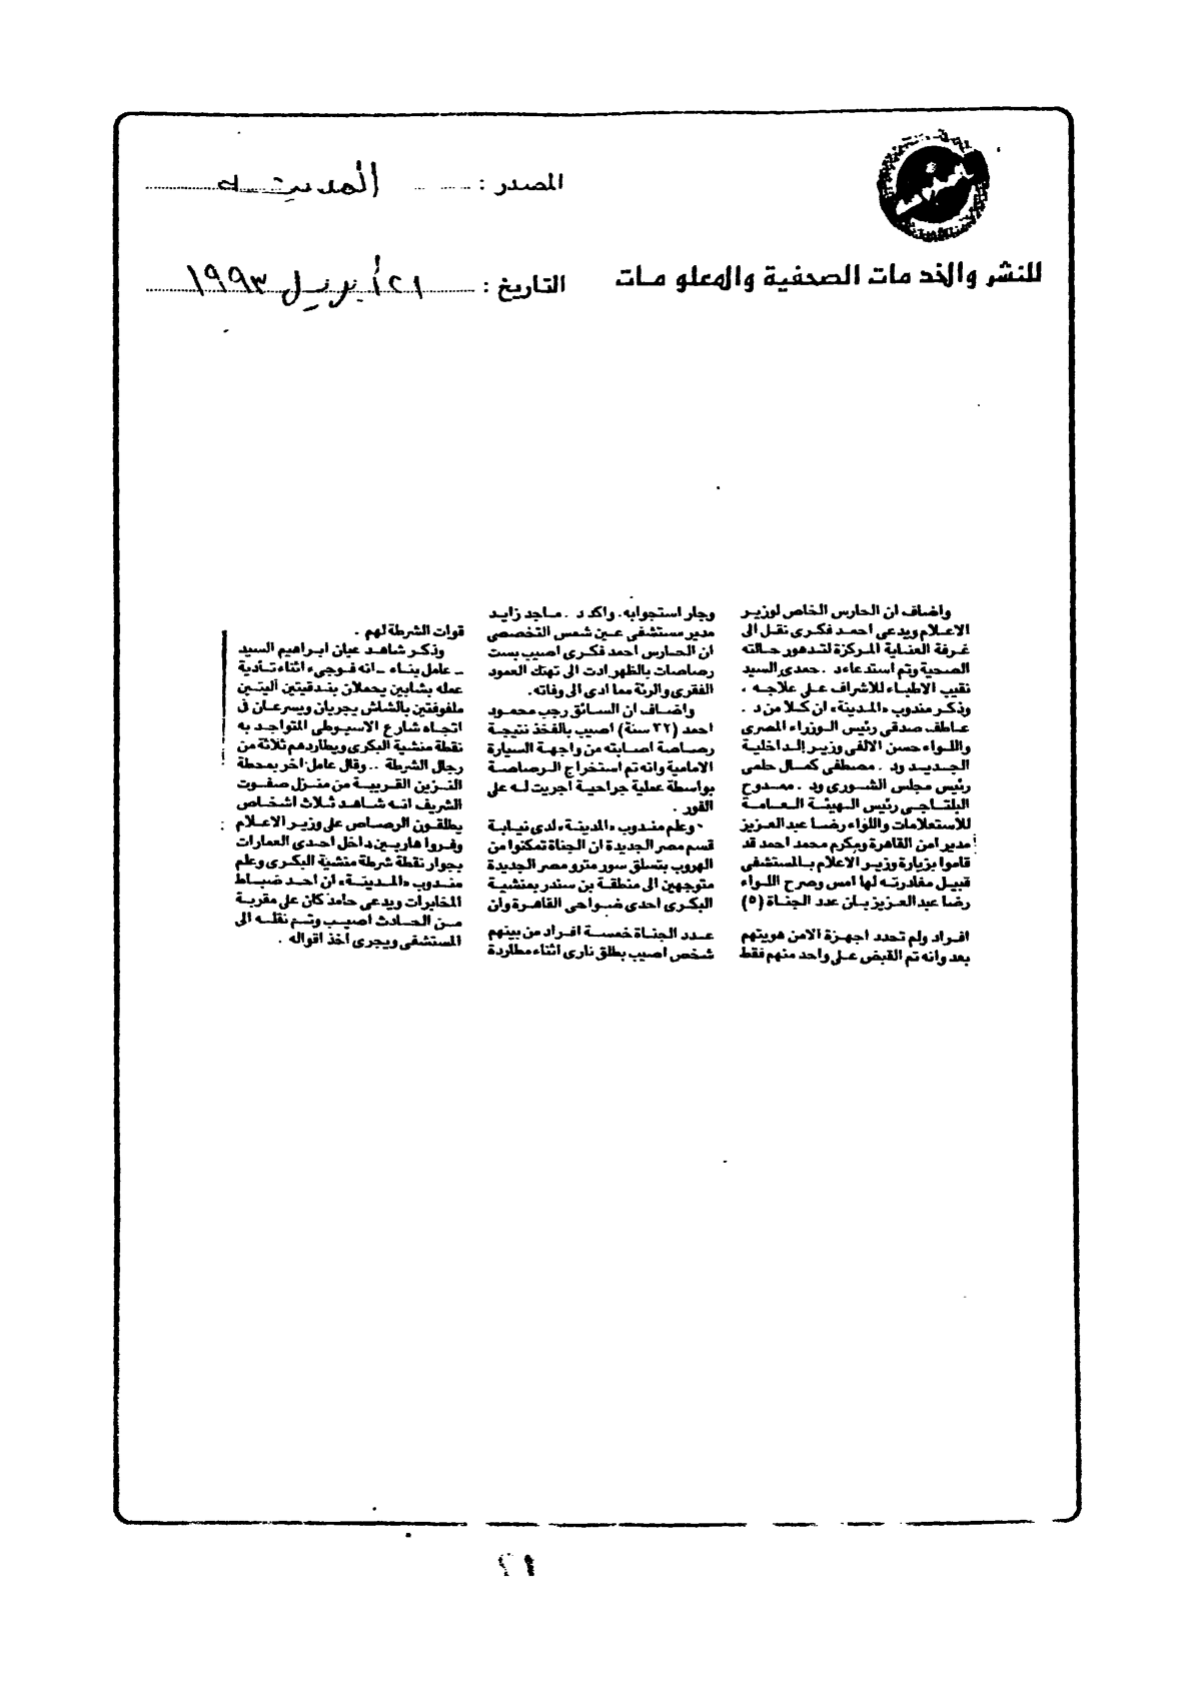 المصدر : المدينة
للنشر والخدمات الصحفية والمعلومات
التاريخ : ٢١ أبريل ١٩٩٣
واضاف ان الحارس الخاص لوزير
الاعلام ويدعى احمد فكرى نقل الى
غرفة العناية المركزة لتدهور حالته
الصحية وتم استدعاء د . حمدى السيد
نقيب الاطباء للاشراف على علاجه .
وذكر مندوب «المدينة» ان كلا من د .
عاطف صدقى رئيس الوزراء المصرى
واللواء حسن الالفى وزير الداخلية
الجديد ود . مصطفى كمال حلمى
رئيس مجلس الشورى ود . ممدوح
البلتاجى رئيس الهيئة العامة
للاستعلامات واللواء رضا عبد العزيز
مدير امن القاهرة ومكرم محمد احمد قد
قاموا بزيارة وزير الاعلام بالمستشفى
قبيل مغادرته لها امس وصرح اللواء
رضا عبد العزيز بان عدد الجناة (٥)
افراد ولم تحدد اجهزة الامن هويتهم
بعد وانه تم القبض على واحد منهم فقط
وجار استجوابه . واكد د . ماجد زايد
مدير مستشفى عين شمس التخصصى
ان الحارس احمد فكرى اصيب بست
رصاصات بالظهر ادت الى تهتك العمود
الفقرى والرئة مما ادى الى وفاته .
واضاف ان السائق رجب محمود
احمد (٣٢ سنة) اصيب بالفخذ نتيجة
رصاصة اصابته من واجهة السيارة
الامامية وانه تم استخراج الرصاصة
بواسطة عملية جراحية اجريت له على
الفور .
وعلم مندوب «المدينة» لدى نيابة
قسم مصر الجديدة ان الجناة تمكنوا من
الهروب بتسلق سور مترو مصر الجديدة
متوجهين الى منطقة بن سندر بمنشية
البكرى احدى ضواحى القاهرة وان
عدد الجناة خمسة افراد من بينهم
شخص اصيب بطلق نارى اثناء مطاردة
قوات الشرطة لهم .
وذكر شاهد عيان ابراهيم السيد
ـ عامل بناء ـ انه فوجىء اثناء تأدية
عمله بشابين يحملان بندقيتين أليتين
ملفوفتين بالشاش يجريان ويسرعان فى
اتجاه شارع الاسيوطى المتواجد به
نقطة منشية البكرى ويطاردهم ثلاثة من
رجال الشرطة .. وقال عامل اخر بمحطة
البنزين القريبة من منزل صفوت
الشريف انه شاهد ثلاث اشخاص
يطلقون الرصاص على وزير الاعلام
وفروا هاربين داخل احدى العمارات
بجوار نقطة شرطة منشية البكرى وعلم
مندوب «المدينة» ان احد ضباط
المخابرات ويدعى حامد كان على مقربة
من الحادث اصيب وتم نقله الى
المستشفى ويجرى أخذ اقواله .